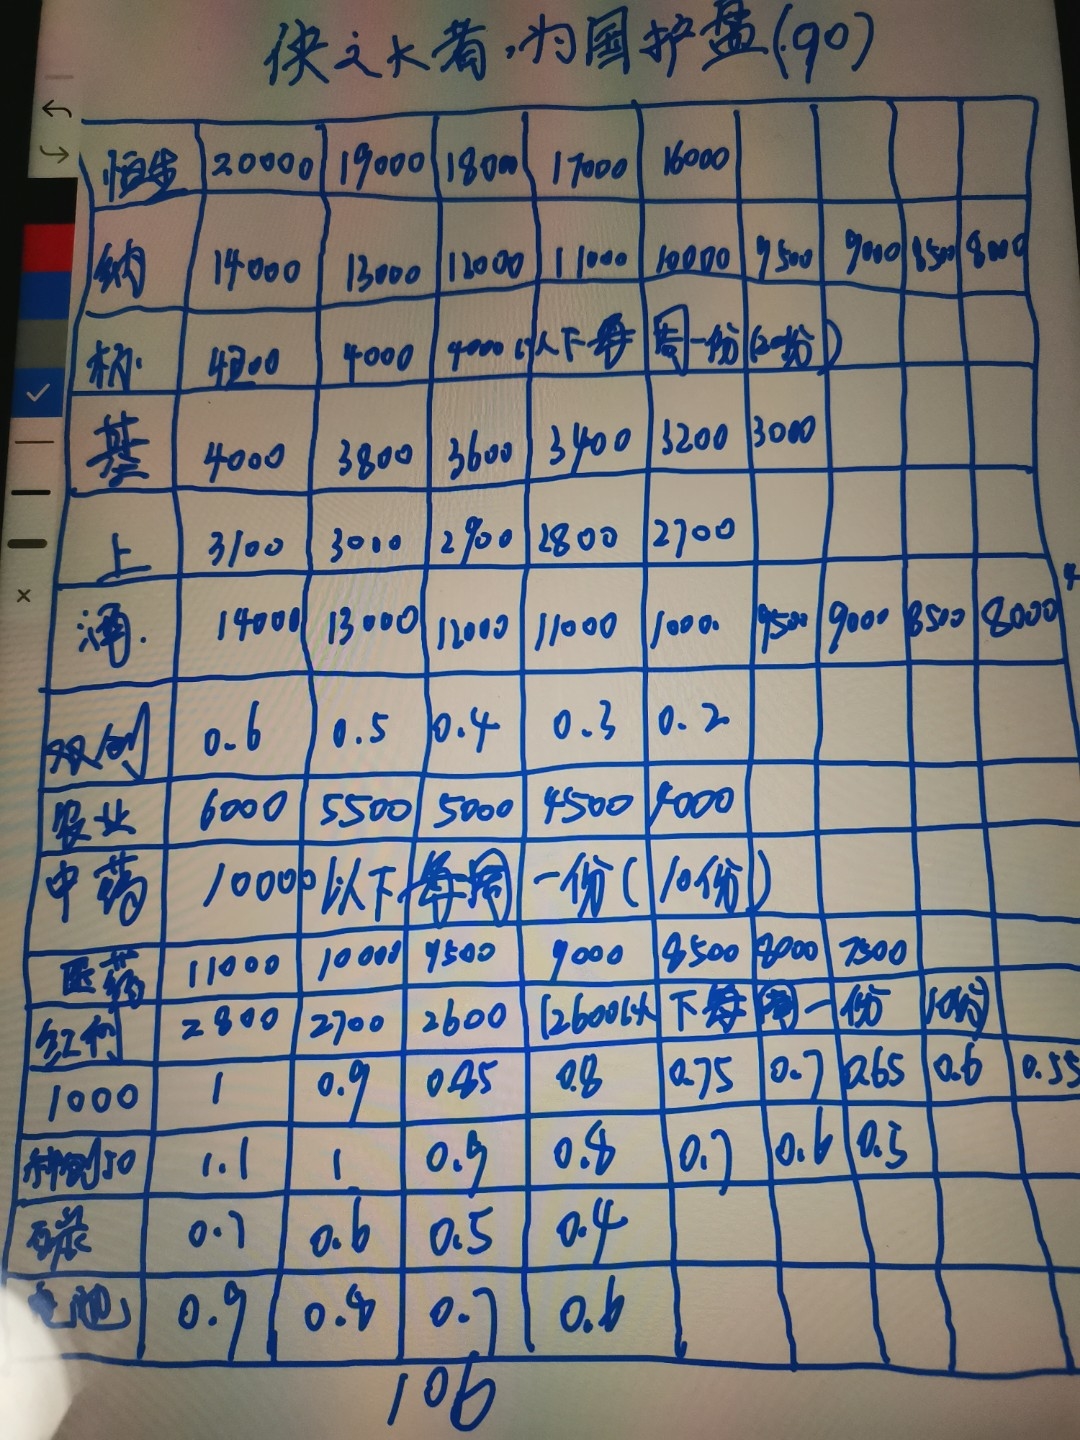 侠之大者,为国护盘(90)
恒生 20000 19000 18000 17000 16000
纳 14000 13000 12000 11000 10000 9500 9000 8500 8000
标. 4200 4000 4000以下每周一份(20份)
基 4000 3800 3600 3400 3200 3000
上 3100 3000 2900 2800 2700
通. 14000 13000 12000 11000 1000. 9500 9000 8500 8000
双创 0.6 0.5 0.4 0.3 0.2
农业 6000 5500 5000 4500 4000
中药 10000以下每周一份(10份)
医药 11000 10000 9500 9000 8500 8000 7500
红利 2800 2700 2600 (2600以下每周一份 10份)
1000 1 0.9 0.85 0.8 0.75 0.7 0.65 0.6 0.55
科创50 1.1 1 0.9 0.8 0.7 0.6 0.5
碳 0.7 0.6 0.5 0.4
电池 0.9 0.8 0.7 0.6
106